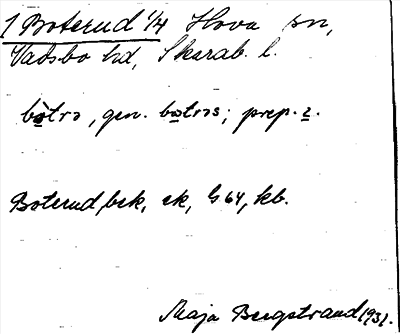 1 Boterud 1/4 Hova sn,
Vadsbo hd, Skarab. l.
bo̱trə, gen. bo̱trəs; prep. i̱.
Boterud bek, ek, G 64, kb.
Maja Bergstrand 1931.